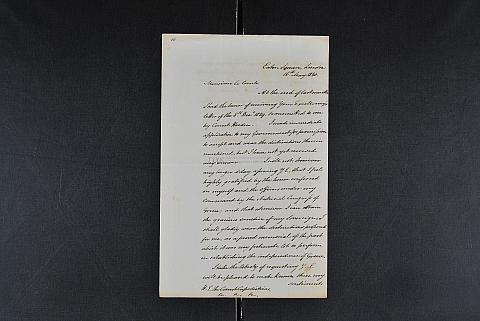 Eaton Square, London
16th May 1830.
Monsieur Le Comte
At the end of last month
I had the honor of receiving Your Excellency's
letter of the 5th Decr 1829, transmitted to me
by Count Heiden. I made immediate
application to my Government for permission
to accept and wear the distinctions therein
mentioned, but I have not yet received
any answer. I will not however
any longer delay assuring Y.E. that I feel
highly gratified by the honor conferred
on myself and the officers under my
command by the National Congress of
Greece and that whenever I can obtain
the gracious sanction of my Sovereign, I
shall gladly wear the distinctions proposed
for me, as a proud memorial of the part
which it was my fortunate lot to perform
in establishing the independence of Greece.
I take the liberty of requesting Y.E.
will be pleased to make known these my
sentiments
H.E. the Count Capodistrias